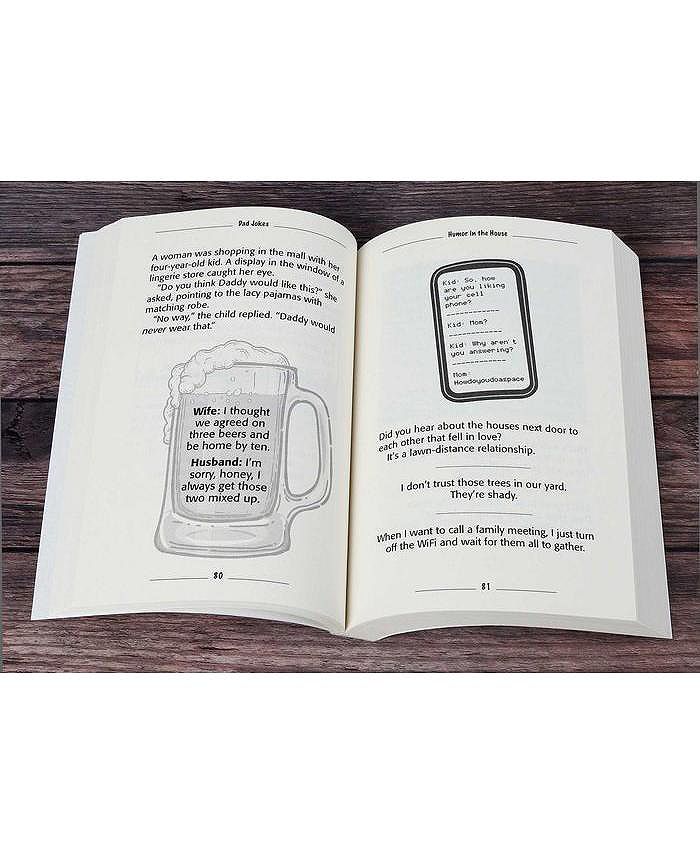 Dad Jokes
A woman was shopping in the mall with her
four-year-old kid. A display in the window of a
lingerie store caught her eye.
"Do you think Daddy would like this?" she
asked, pointing to the lacy pajamas with
matching robe.
"No way," the child replied. "Daddy would
never wear that."
Wife: I thought
we agreed on
three beers and
be home by ten.
Husband: I'm
sorry, honey, I
always get those
two mixed up.
80
Humor in the House
Kid: So, how
are you liking
your cell
phone?
Kid: Mom?
Kid: Why aren't
you answering?
Mom:
Howdoyoudoaspace
Did you hear about the houses next door to
each other that fell in love?
It's a lawn-distance relationship.
I don't trust those trees in our yard.
They're shady.
When I want to call a family meeting, I just turn
off the WiFi and wait for them all to gather.
81